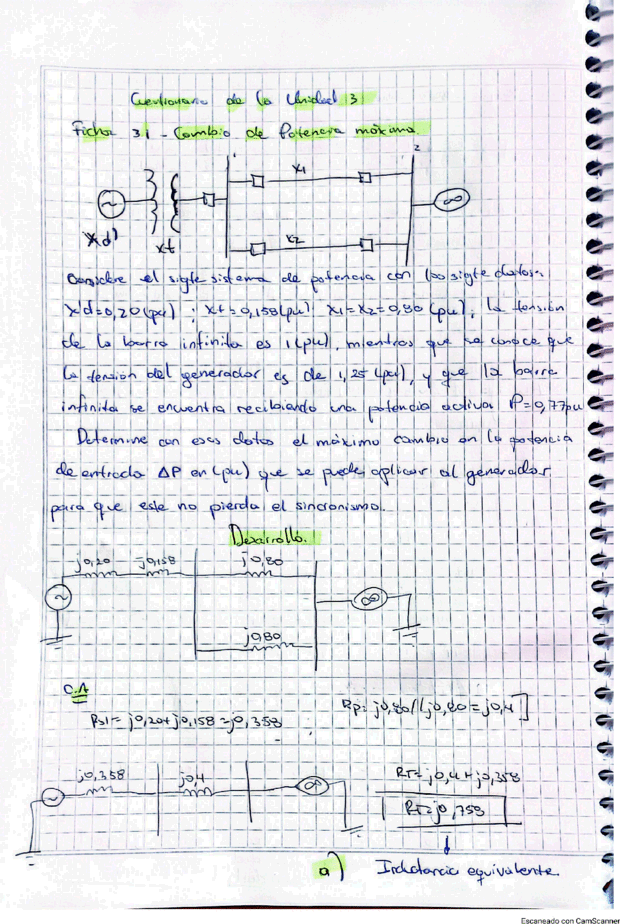 Cuestionario de la Unidad 3
Ficha 3.1 - Cambio de Potencia máxima.
1
2
x1
∞
x2
Xd'
xt
Considere el sigte sistema de potencia con los sigte datos:
X'd=0,20(pu) ; Xt=0,158(pu) x1=x2=0,80 (pu), la tensión
de la barra infinita es 1(pu), mientras que se conoce que
la tensión del generador es de 1,25 (pu), y que la barra
infinita se encuentra recibiendo una potencia activa P=0,77pu
Determine con esos datos el máximo cambio en la potencia
de entrada ΔP en (pu) que se puede aplicar al generador
para que este no pierda el sincronismo.
Desarrollo.
j0,20 j0,158 j0,80
∞
j0,80
C.A
Rs1= j0,20+j0,158=j0,358
Rp= j0,80//j0,80=j0,4
j0,358 j0,4
∞
RT=j0,4+j0,358
RT=j0,758
a) Inductancia equivalente.
Escaneado con CamScanner